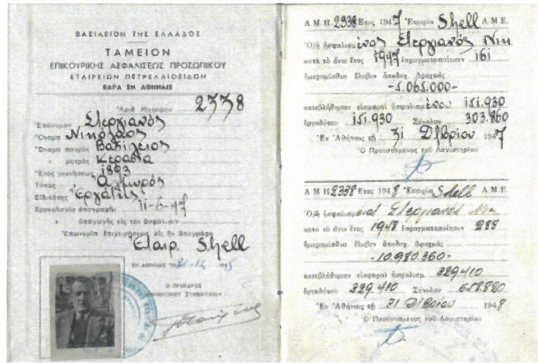 ΒΑΣΙΛΕΙΟΝ ΤΗΣ ΕΛΛΑΔΟΣ
ΤΑΜΕΙΟΝ
ΕΠΙΚΟΥΡΙΚΗΣ ΑΣΦΑΛΙΣΕΩΣ ΠΡΟΣΩΠΙΚΟΥ
ΕΤΑΙΡΕΙΩΝ ΠΕΤΡΕΛΑΙΟΕΙΔΩΝ
ΕΔΡΑ ΕΝ ΑΘΗΝΑΙΣ
Ἀριθ. Μητρῴου 2338
Ἐπώνυμον Στεργιανός
Ὄνομα Νικόλαος
Ὄνομα πατρός Βασίλειος
μητρός
Ἔτος γεννήσεως
Τόπος
Εἰδικότης Ἐργάτης
11-6-47
Ἐπωνυμία ἐπιχειρήσεως
Ἑταιρ. Shell
ΕΝ ΑΘΗΝΑΙΣ ΤΗ
Ο ΠΡΟΕΔΡΟΣ
Α.Μ.Η. 2338 Ἔτος 1947 Ἑταιρία Shell Α.Μ.Ε.
Ὁ/ἡ ἠσφαλισμένος Στεργιανός Νικ
κατὰ τὸ ἄνω ἔτος 1947 ἐπραγματοποίησεν 161
ἡμερομίσθια λαβὼν ἀποδοχ. δραχμάς
-5.065.000-
κατεβλήθησαν εἰσφοραὶ ἠσφαλισμένου 151.930
ἐργοδότου 151.930 Σύνολον 303.860
Ἐν Ἀθήναις τῇ 31 Δ/βρίου 1947
Ὁ Προϊστάμενος τοῦ Λογιστηρίου
Α.Μ.Η. 2338 Ἔτος 1948 Ἑταιρία Shell Α.Μ.Ε.
Ὁ/ἡ Στεργιανός Νικ
κατὰ τὸ ἄνω ἔτος 1948 ἐπραγματοποίησεν 288
ἡμερομίσθια λαβὼν ἀποδοχ. δραχμάς
-10.980.360-
κατεβλήθησαν εἰσφοραὶ ἠσφαλισμ. 329.410
ἐργοδότου 329.410 Σύνολον 658.820
Ἐν Ἀθήναις τῇ 31 Δ/βρίου 1948
Ὁ Προϊστάμενος τοῦ Λογιστηρίου